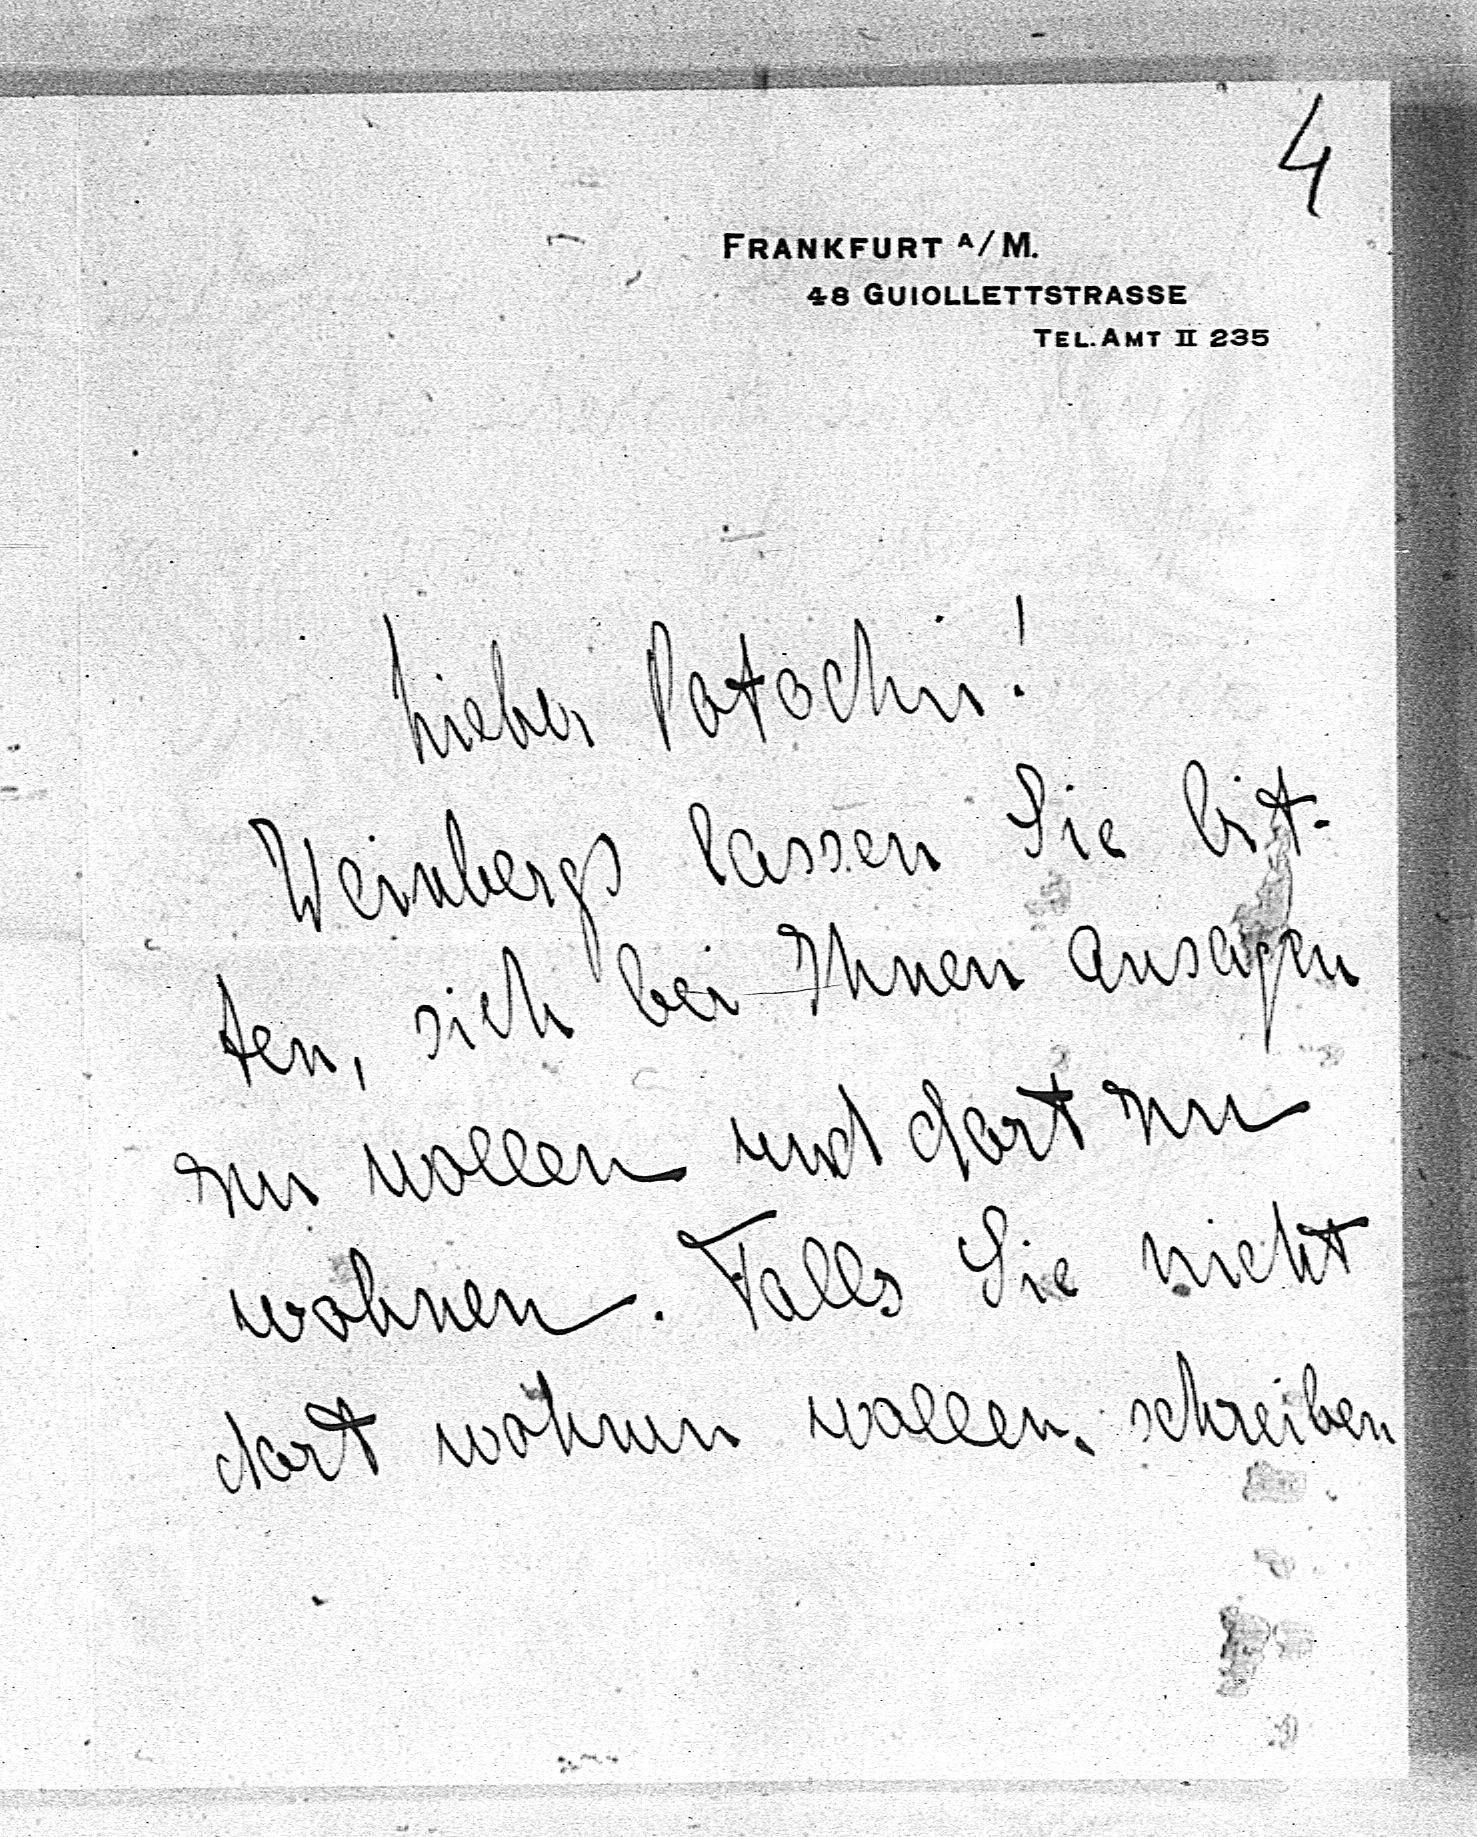 4
FRANKFURT A/M.
48 GUIOLLETTSTRASSE
TEL. AMT II 235
Lieber Patachin!
Weinbergs lassen Sie bit-
ten, sich bei Ihnen ansagen
zu wollen und dort zu
wohnen. Falls Sie nicht
dort wohnen wollen, schreiben